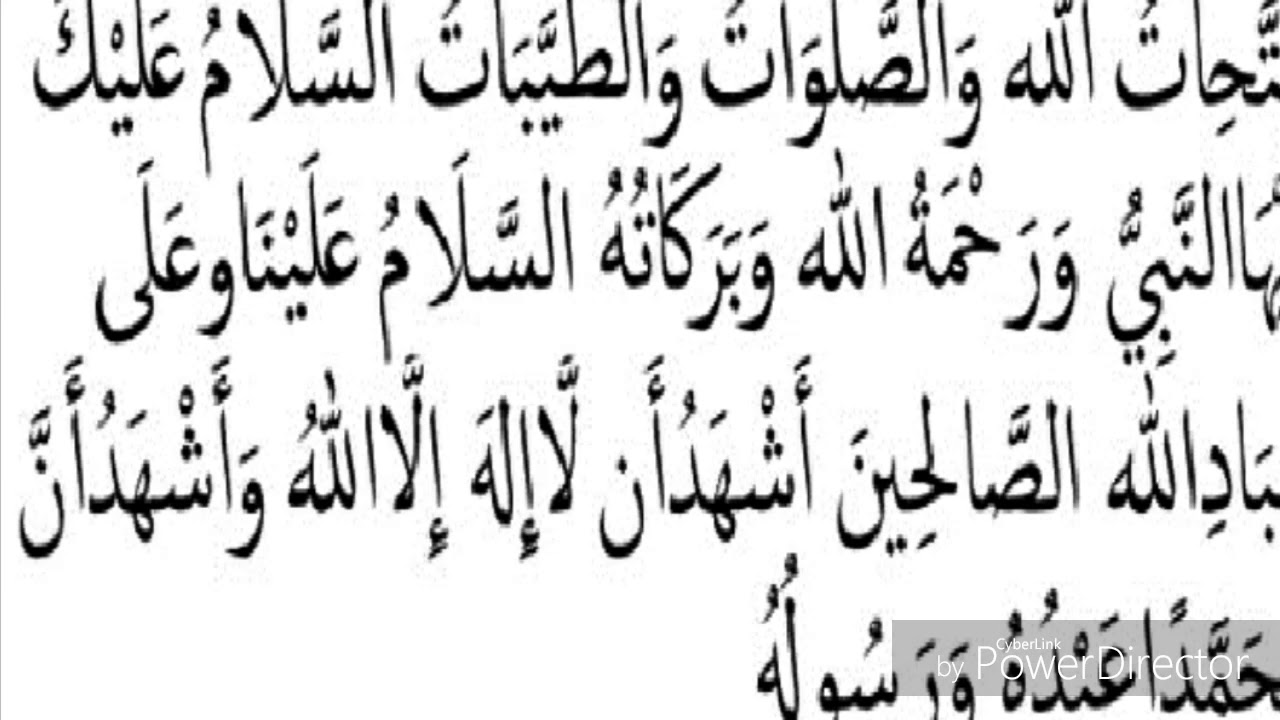 تَّحِاتُ الله وَالصَّلوَات وَالطيَّبَات السَّلامُ عَليْكَ
هَاالنَّبِيُّ وَرَحْمَةُ الله وَبَرَكَاتهُ السَّلَامُ عَليْنَاوعَلَى
بَادِالله الصَّالحِينَ أَشْهَدُأَن لَّاإلهَ إِلَّااللهُ وَأَشْهَدُأَنَّ
حَمَّدًاعَبْدُهُ وَرَسُولُهُ
CyberLink
by PowerDirector